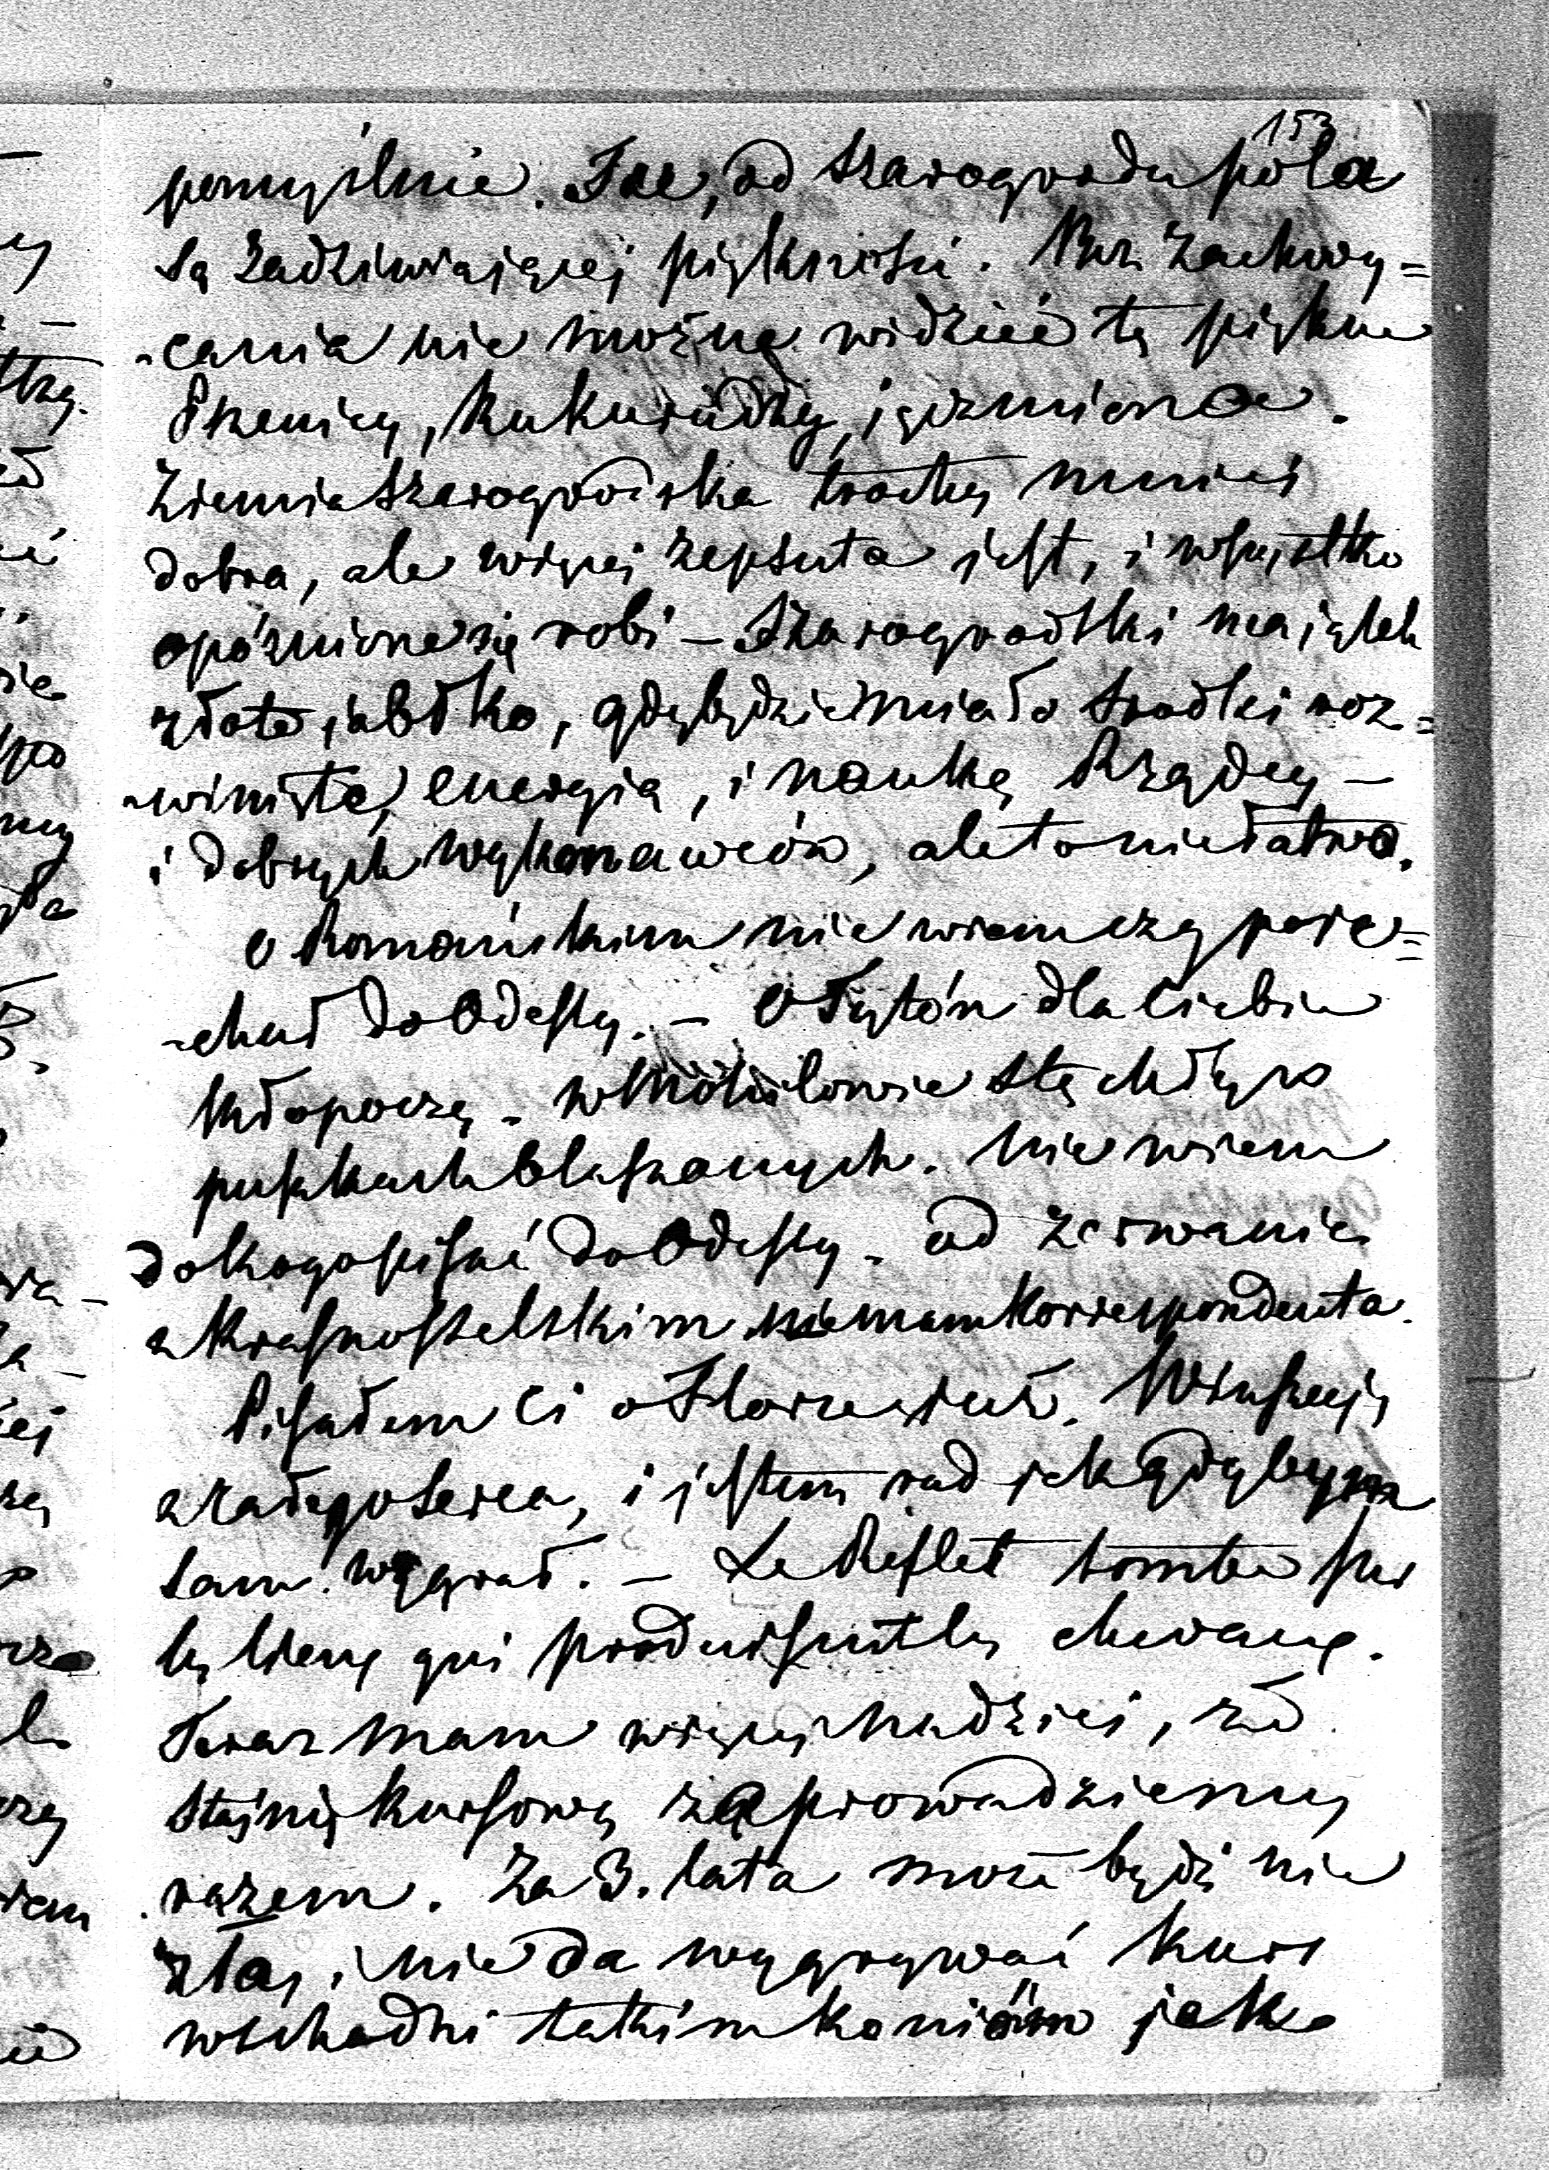 153
pomyślnie. Ize, od Szarogrodu pola
są zadziwiającej piękności. Bez zachwy=
-cania nie można widzieć tę piękne
Pszenicy, kukurudzy, jęczmiona.
Ziemia Szarogrodzka trochę mniej
dobra, ale więcej zepsuta jest, i wszystko
opóźnione się robi – Szarogrodzki majątek
złote jabłko, gdy będzie miało środki roz=
-winięte, energią, i nauką Rządcy –
i dobrych wykonawców, ale to nie łatwo.
O Romańskim nie wiem czy poje=
-chał do Odessy. – O Tytóń dla Ciebie
kłopoczę. w Mohilowie stęchły w
puszkach blaszanych. Nie wiem
do kogo pisać do Odessy. Od zerwania
z Krasnosielskim nie mam Korrespondenta.
Pisałem Ci o. Winszuję
z całego serca, i jestem rad jak gdybym
sam wygrał. – Le Reflet tombe sur
les liens qui produisent les chevaux.
Teraz mam więcej nadziei, że
stajnię kursową zaprowadziemy
razem. Za 3. lata może będzie nie
zła, i nie da wygrywać kurs
wschodni takim koniom jak